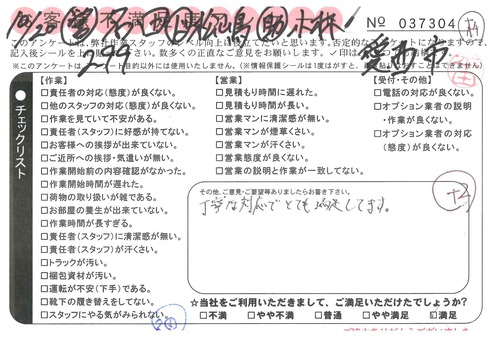 № 037304
このアンケートは、弊社作業スタッフのレベル向上に役立てたいと思います。否定的なアンケートになりますので、
記入後シールを上から貼ってください。
チェックリスト
【作業】
□責任者の対応(態度)が良くない。
□他のスタッフの対応(態度)が良くない。
□作業を見ていて不安がある。
□責任者(スタッフ)に好感が持てない。
□お客様への挨拶が出来ていない。
□ご近所への挨拶・気遣いが無い。
□作業開始前の内容確認がなかった。
□作業開始時間が遅れた。
□荷物の取り扱いが雑である。
□お部屋の養生が出来ていない。
□作業時間が長すぎる。
□責任者(スタッフ)に清潔感が無い。
□責任者(スタッフ)が汗くさい。
□トラックが汚い。
□梱包資材が汚い。
□運転が不安(下手)である。
□靴下の履き替えをしてない。
□スタッフにやる気がみられない。
【営業】
□見積もり時間に遅れた。
□見積もり時間が長い。
□営業マンに清潔感が無い。
□営業マンが煙草くさい。
□営業マンが汗くさい。
□営業態度が良くない。
□営業の説明と作業が一致してない。
【受付・その他】
□電話の対応が良くない。
□オプション業者の説明
・作業が良くない。
□オプション業者の対応
(態度)が良くない。
その他、ご意見・ご要望等ありましたらお書き下さい。
丁寧な対応でとても満足してます。
☆当社をご利用いただきまして、ご満足いただけたでしょうか?
□不満 □やや不満 □普通 □やや満足 ☑満足